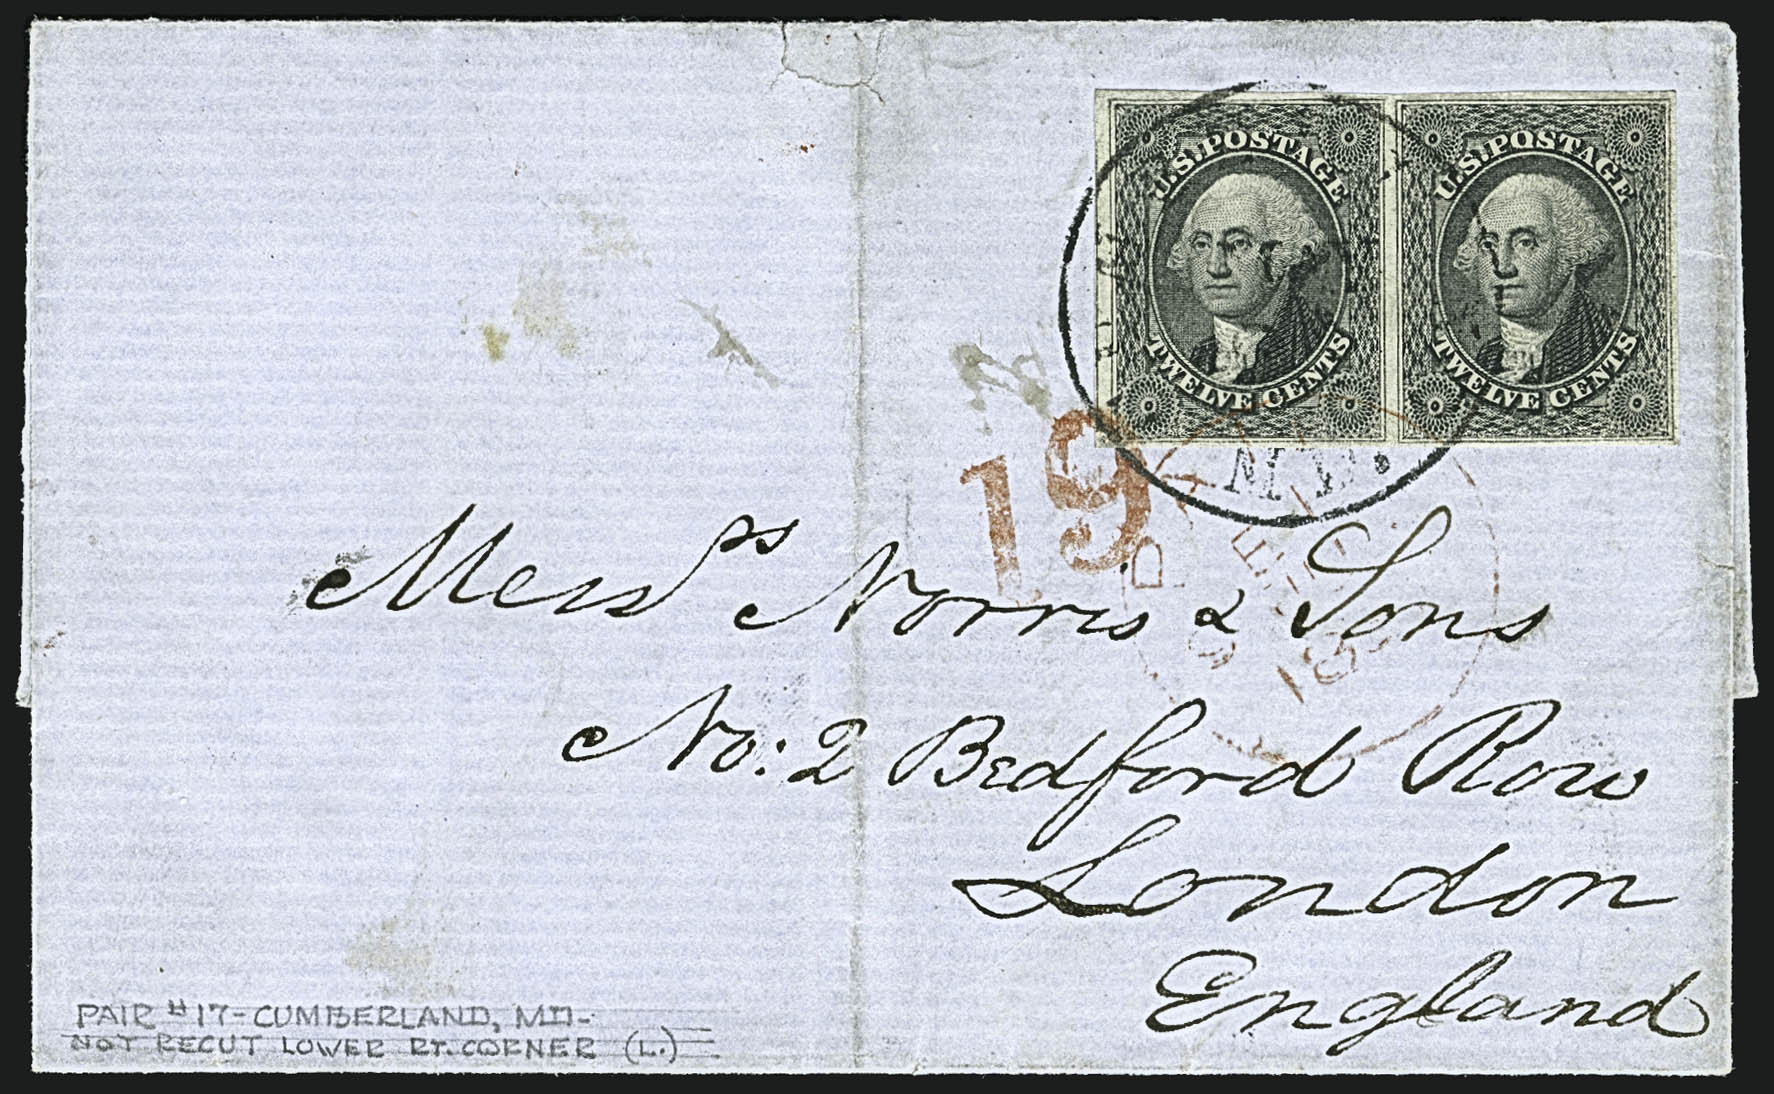 U.S. POSTAGE
TWELVE CENTS
U.S. POSTAGE
TWELVE CENTS
MD.
19
PAID
18
Mess<sup>rs</sup> Norris & Sons
No: 2 Bedford Row
London
England
PAIR #17-CUMBERLAND, MD-
NOT RECUT LOWER RT. CORNER (L.)